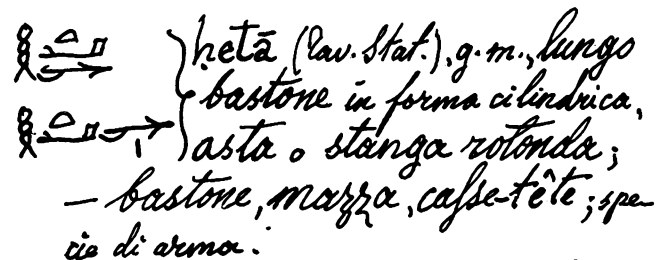 ḥetā (Lav. Stat.), g. m., lungo
bastone in forma cilindrica,
asta o stanga rotonda;
— bastone, mazza, casse-tête; spe-
cie di arma.